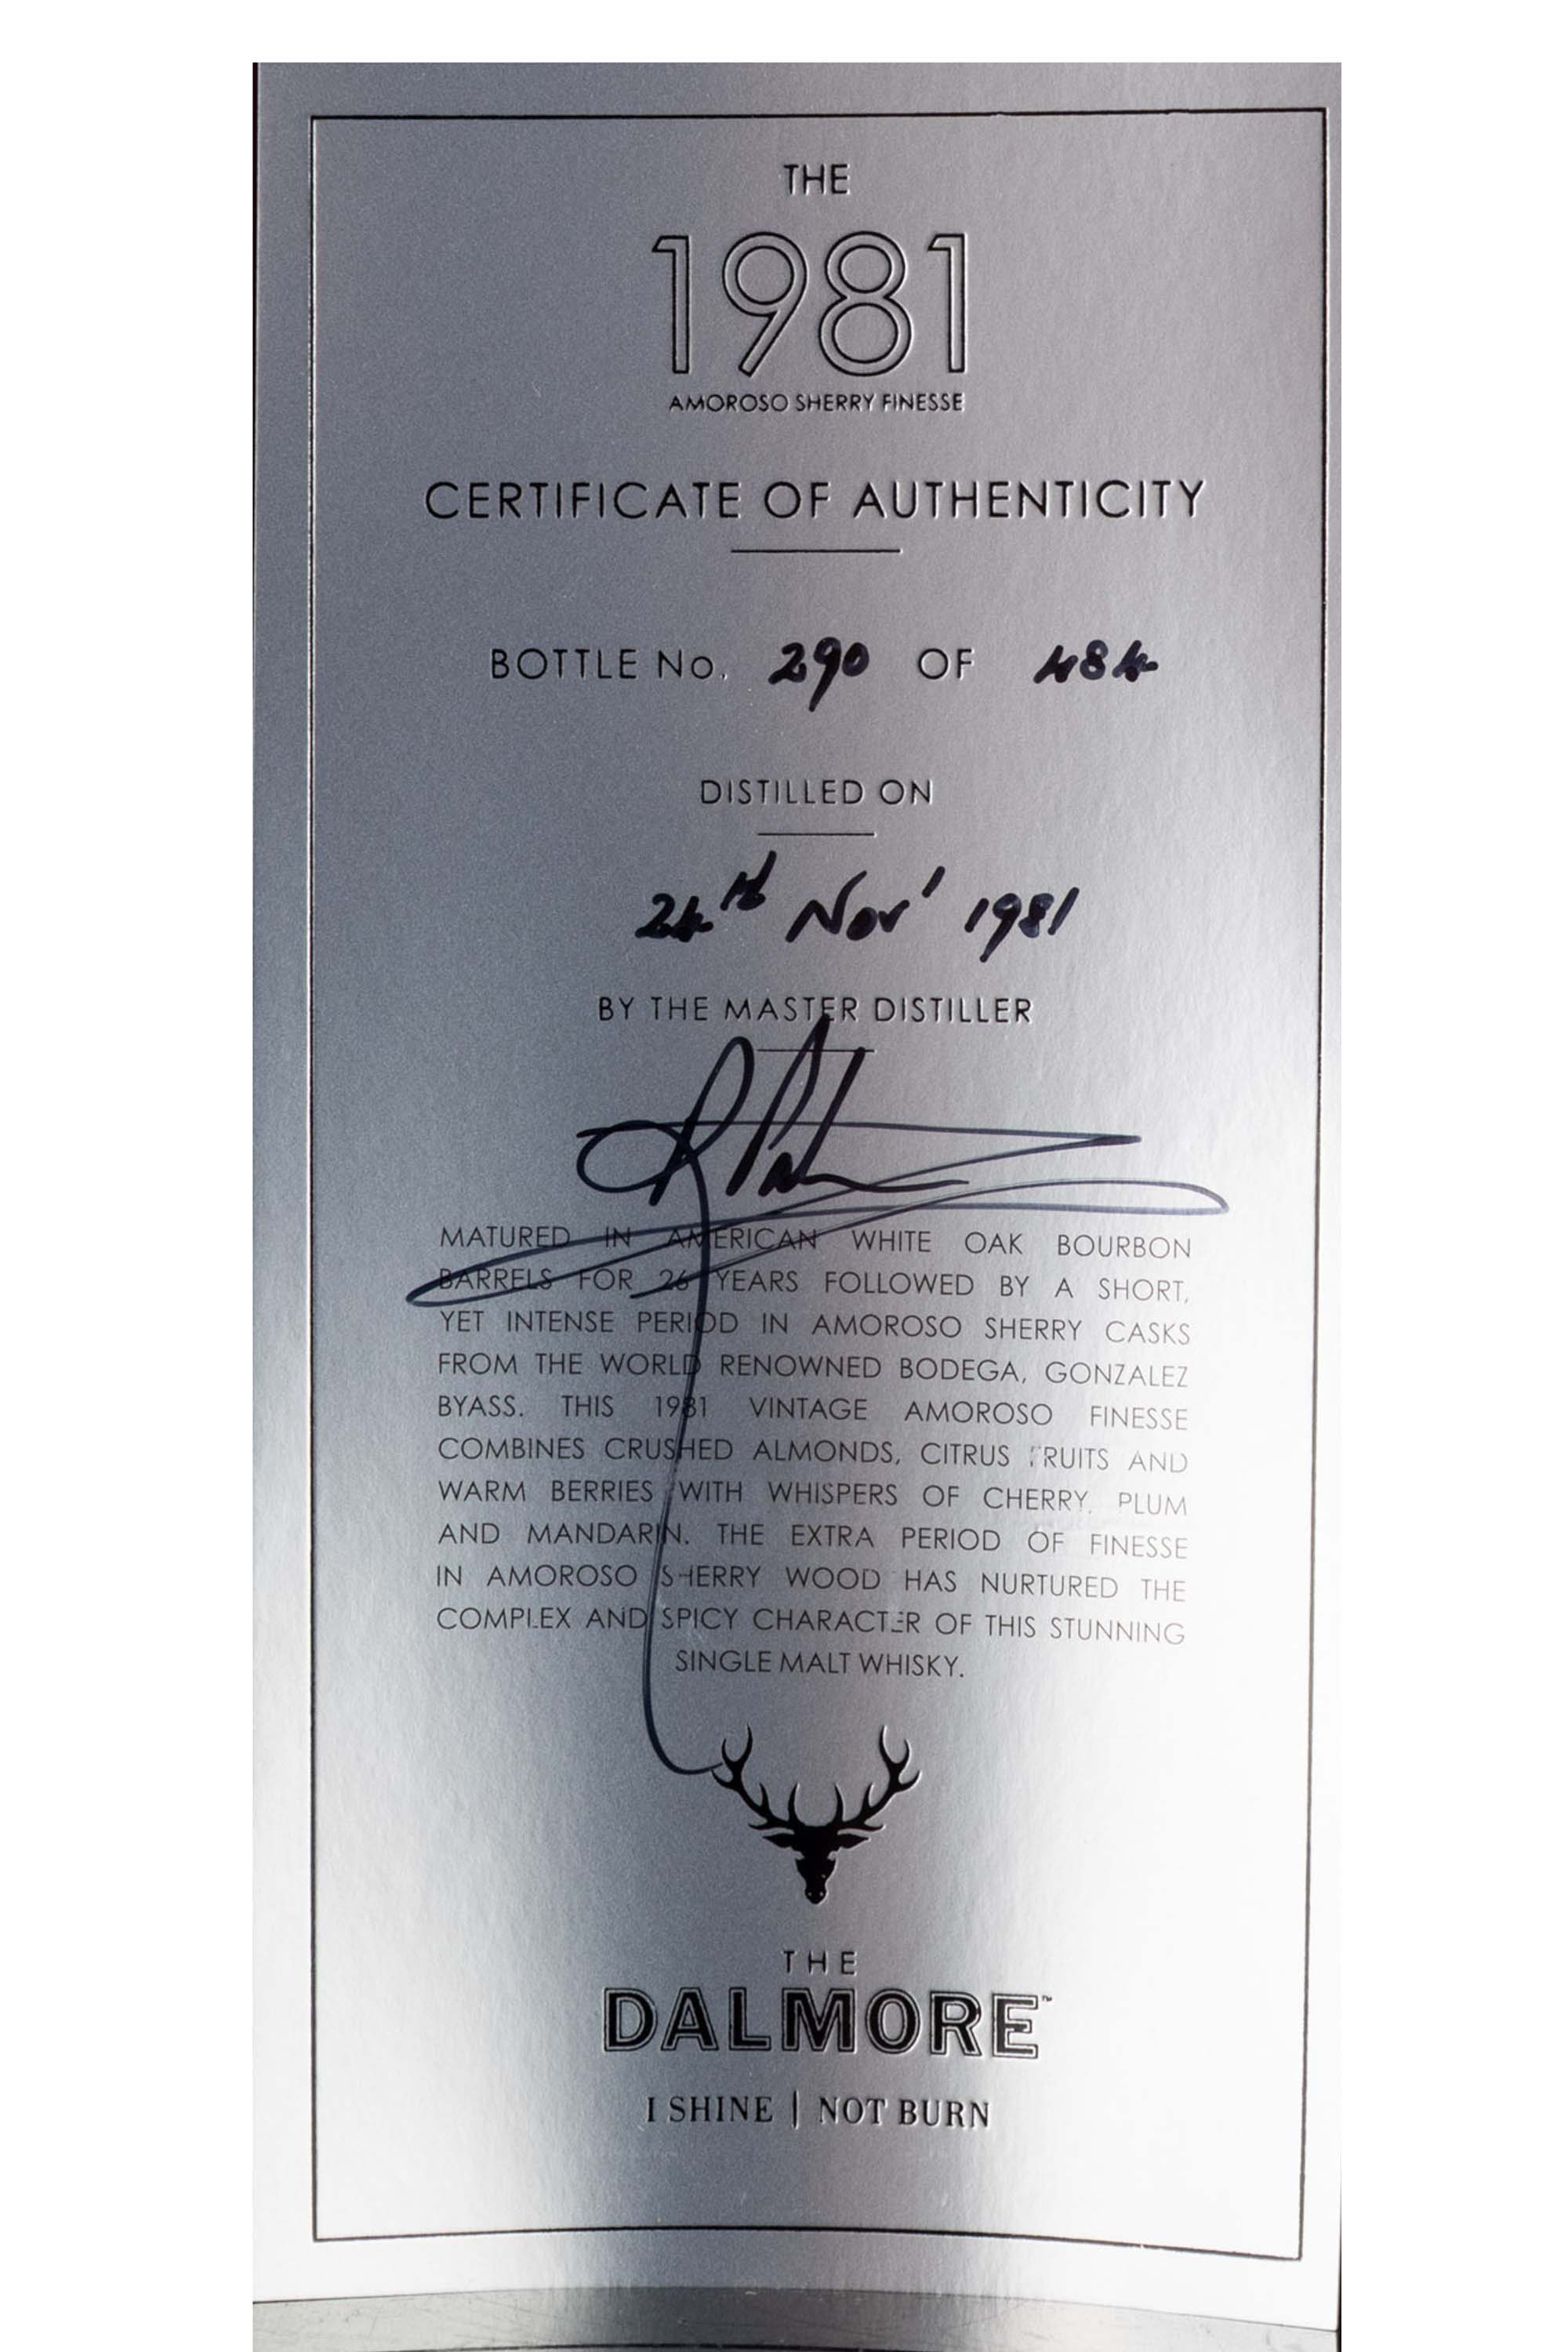 THE
1981
AMOROSO SHERRY FINESSE
CERTIFICATE OF AUTHENTICITY
BOTTLE No. 290 OF 484
DISTILLED ON
24th Nov' 1981
BY THE MASTER DISTILLER
MATURED IN AMERICAN WHITE OAK BOURBON
BARRELS FOR 26 YEARS FOLLOWED BY A SHORT,
YET INTENSE PERIOD IN AMOROSO SHERRY CASKS
FROM THE WORLD RENOWNED BODEGA, GONZALEZ
BYASS. THIS 1981 VINTAGE AMOROSO FINESSE
COMBINES CRUSHED ALMONDS, CITRUS FRUITS AND
WARM BERRIES WITH WHISPERS OF CHERRY, PLUM
AND MANDARIN. THE EXTRA PERIOD OF FINESSE
IN AMOROSO SHERRY WOOD HAS NURTURED THE
COMPLEX AND SPICY CHARACTER OF THIS STUNNING
SINGLE MALT WHISKY.
THE
DALMORE™
I SHINE | NOT BURN